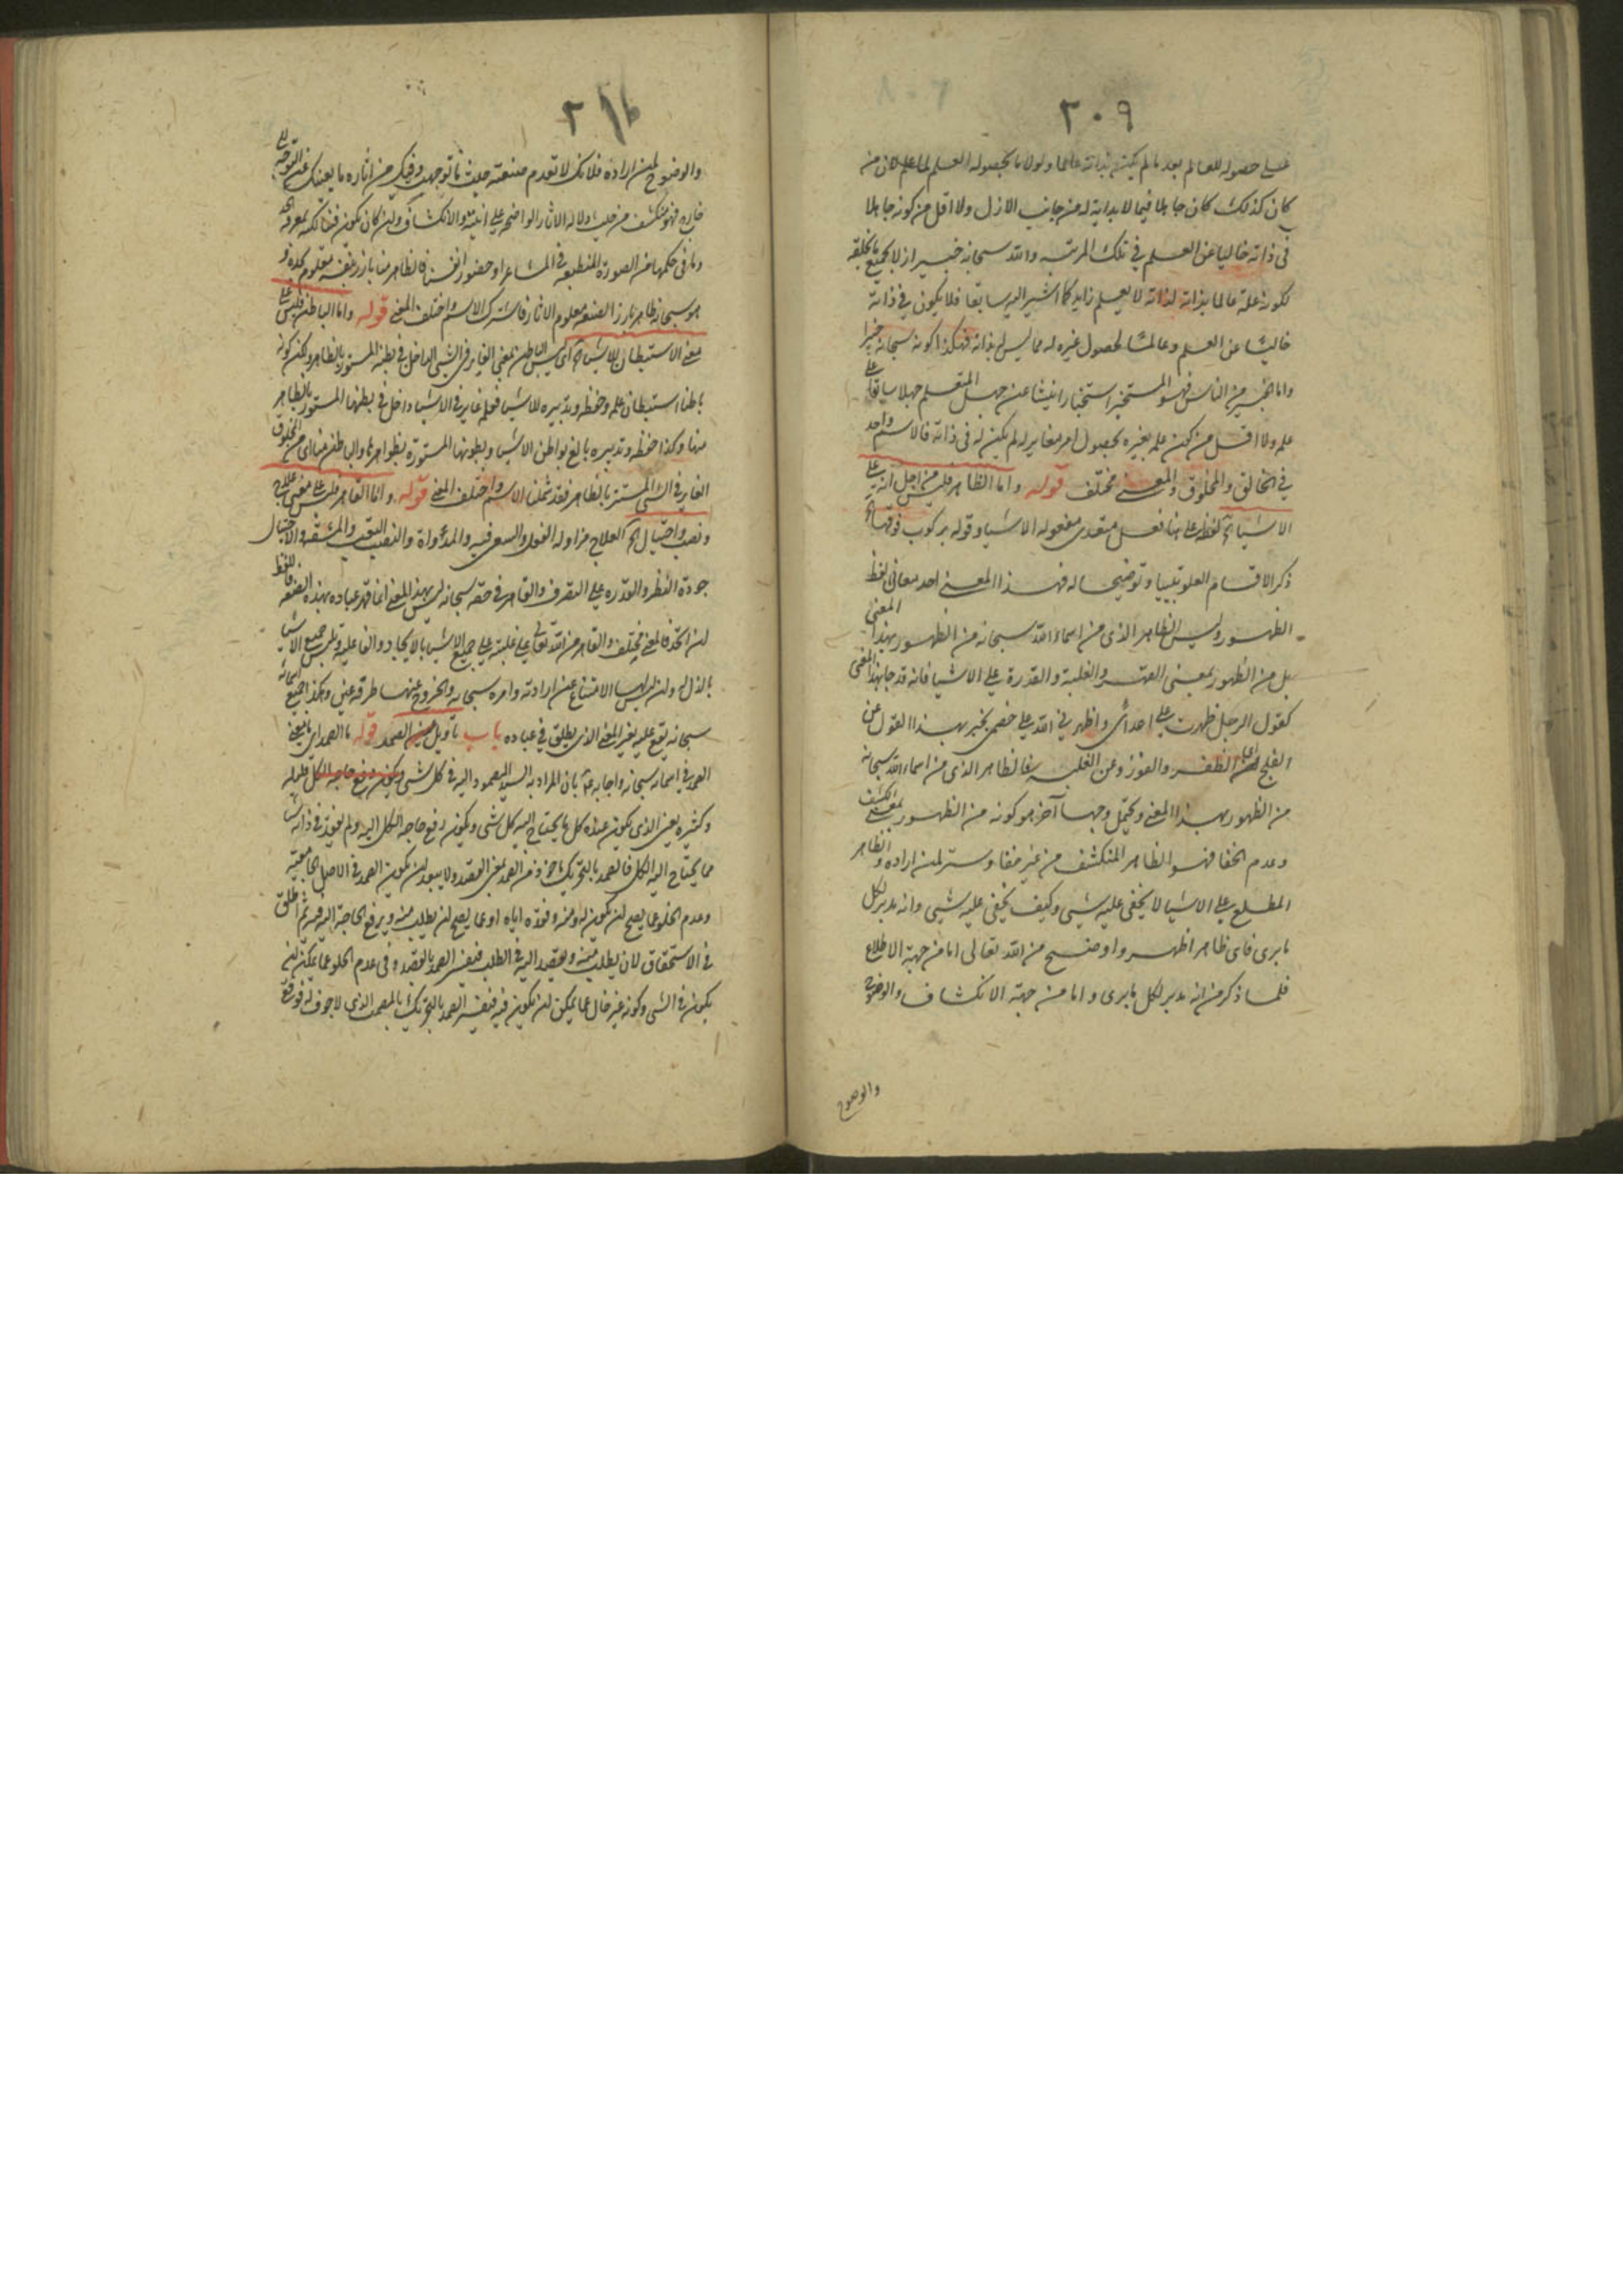 ٢٠٩
على حصوله للعالم بعد ما لم يكن بذاته عالما ولولا ما بحصوله العلم لما علم كان من
كان كذلك كان جاهلا فيما لا بداية له من جانب الازل ولا اقل من كونه جاهلا
فى ذاته خاليا عن العلم في تلك المرتبه والله سبحانه خبير ازلا بجميع ما يخلقه
لكونه علة عالما بذاته لذاته لا بعلم زايد كما اشير اليه سابقا فلا يكون في ذاته
خاليا عن العلم وعالما لحصول غيره له مما ليس له بذاته فهكذا كونه سبحانه خبيرا
واما الخبير من الناس فهو المستخبر استخبارا ينشا عن جهل المتعلم جهلا سابقا على
علمه ولا اقل من كون علمه بغيره بحصول امر مغاير له لم يكن له فى ذاته فالاسم واحد
في الخالق والمخلوق والمعنى مختلف قوله واما الظاهر فليس من اجل انه على
الاشياء الخ لفظه على هنا فعل متعدى مفعوله الاشيا وقوله بركوب فوقها الخ
ذكر الاقسام العلو تبيينا وتوضيحا له فهذا المعنى احد معانى لفظ
الظهور وليس الظاهر الذى من اسماء الله سبحانه من الظهور بهذا المعنى
بل من الظهور بمعنى القهر والغلبة والقدرة على الاشيا فانه قد جا بهذا المعنى
كقول الرجل ظهرت على اعدائى واظهرنى الله على خصمى يخبر بهذا القول عن
الفلج اى الظفر والفوز وعن الغلبه فالظاهر الذى من اسماء الله سبحانه
من الظهور بهذا المعنى ويحتمل وجها آخر هو كونه من الظهور بمعنى الكشف
وعدم الخفا فهو الظاهر المنكشف من غير خفا وستر لمن اراده والظاهر
المطلع على الاشيا لا يخفى عليه شى وكيف يخفى عليه شيى وانه مدبر لكل
ما برى فاى ظاهر اظهر واوضح من الله تعالى اما من جهة الاطلاع
فلما ذكر من انه مدبر لكل ما برى واما من جهة الانكشاف والوضوح
والوضوح
٢١٠
والوضوح لمن اراده فلانك لا تعدم صنعته حيث ما توجهت وفيك من اثاره ما يغنيك عن التوجه الى
خارج فهو منكشف من حيث دلالة الاثار الواضحه على انيته والانكشاف
وما فى حكمها من الصورة المنطبعه في المشاعر او حضور انفسنا فالظاهر منا بارز بنفسه معلوم بحده و
هو سبحانه ظاهر بارز الصنعه معلوم الاثار فاشترك الاسم واختلف المعنى قوله واما الباطن فليس على
معنى الاستبطان للاشيا الخ اى ليس الباطن بمعنى الغاير فى الشى الداخل فى بطنه المستور بالظاهر ولكن كونه
باطنا استبطان علمه وحفظه وتدبيره للاشيا فعلمه غاير في الاشيا داخل فى بطنها المستور بالظاهر
منها وكذا حفظه وتدبيره بالغ بواطن الاشيا وبطونها المستورة بظواهرها والباطن منا اى من المخلوق
الغاير فى الشى المستتر بالظاهر فقد شملنا الاسم واختلف المعنى قوله واما القاهر فليس على معنى علاج
ونصب واحتيال الخ العلاج مزاولة الفعل والسعى فيه والمداواة والنصب التعب والمشقة والاحتيال
جودة النظر والقدرة على التصرف والقاهر فى حقه سبحانه ليس بهذا المعنى انما قهر عباده بهذه الصنعه فاللفظ
ان اتحد فالمعنى مختلف والقاهر من الله تعالى على غلبته على جميع الاشيا بالايجاد والفاعليه وتلبس جميع الاشيا
بالذل له وان ليس لها الامتناع عن ارادته وامره سبحانه والخروج عنها طرفة عين وهكذا جميع اسمائه
سبحانه يقع عليه بغير المعنى الذى يطلق فى عباده باب تاويل الصمد قوله ما الصمد اى ما معنى
الصمد في اسمائه سبحانه واجابه عم بان المراد به السيد المصمود اليه فى كل شى وكون رفع حاجة الكل
وكثيره يعنى الذى يكون عنده كل ما يحتاج اليه كل شى ويكون رفع حاجة الكل اليه ولم يفقد فى ذاته شيئا
مما يحتاج اليه الكل فالصمد بالتحريك ماخوذ من الصمد بمعنى القصد ولا يبعد ان يكون الصمد فى الاصل الجامعيه
وعدم الخلو عما يصح ان يكون له ومنه وفقده اياه او عما يصح ان يطلب منه ويرفع الحاجة اليه فيه ثم اطلق
فى الاستحقاق لان يطلب منه ويقصد اليه فى الطلب ففسر الصمد بالقصد وفى عدم الخلو عما يمكن ان
يكون فى الشى وكونه غير خال عما يمكن ان يكون فيه ففسر الصمد بالتحريك بالمصمت الذى لا جوف له فوقع